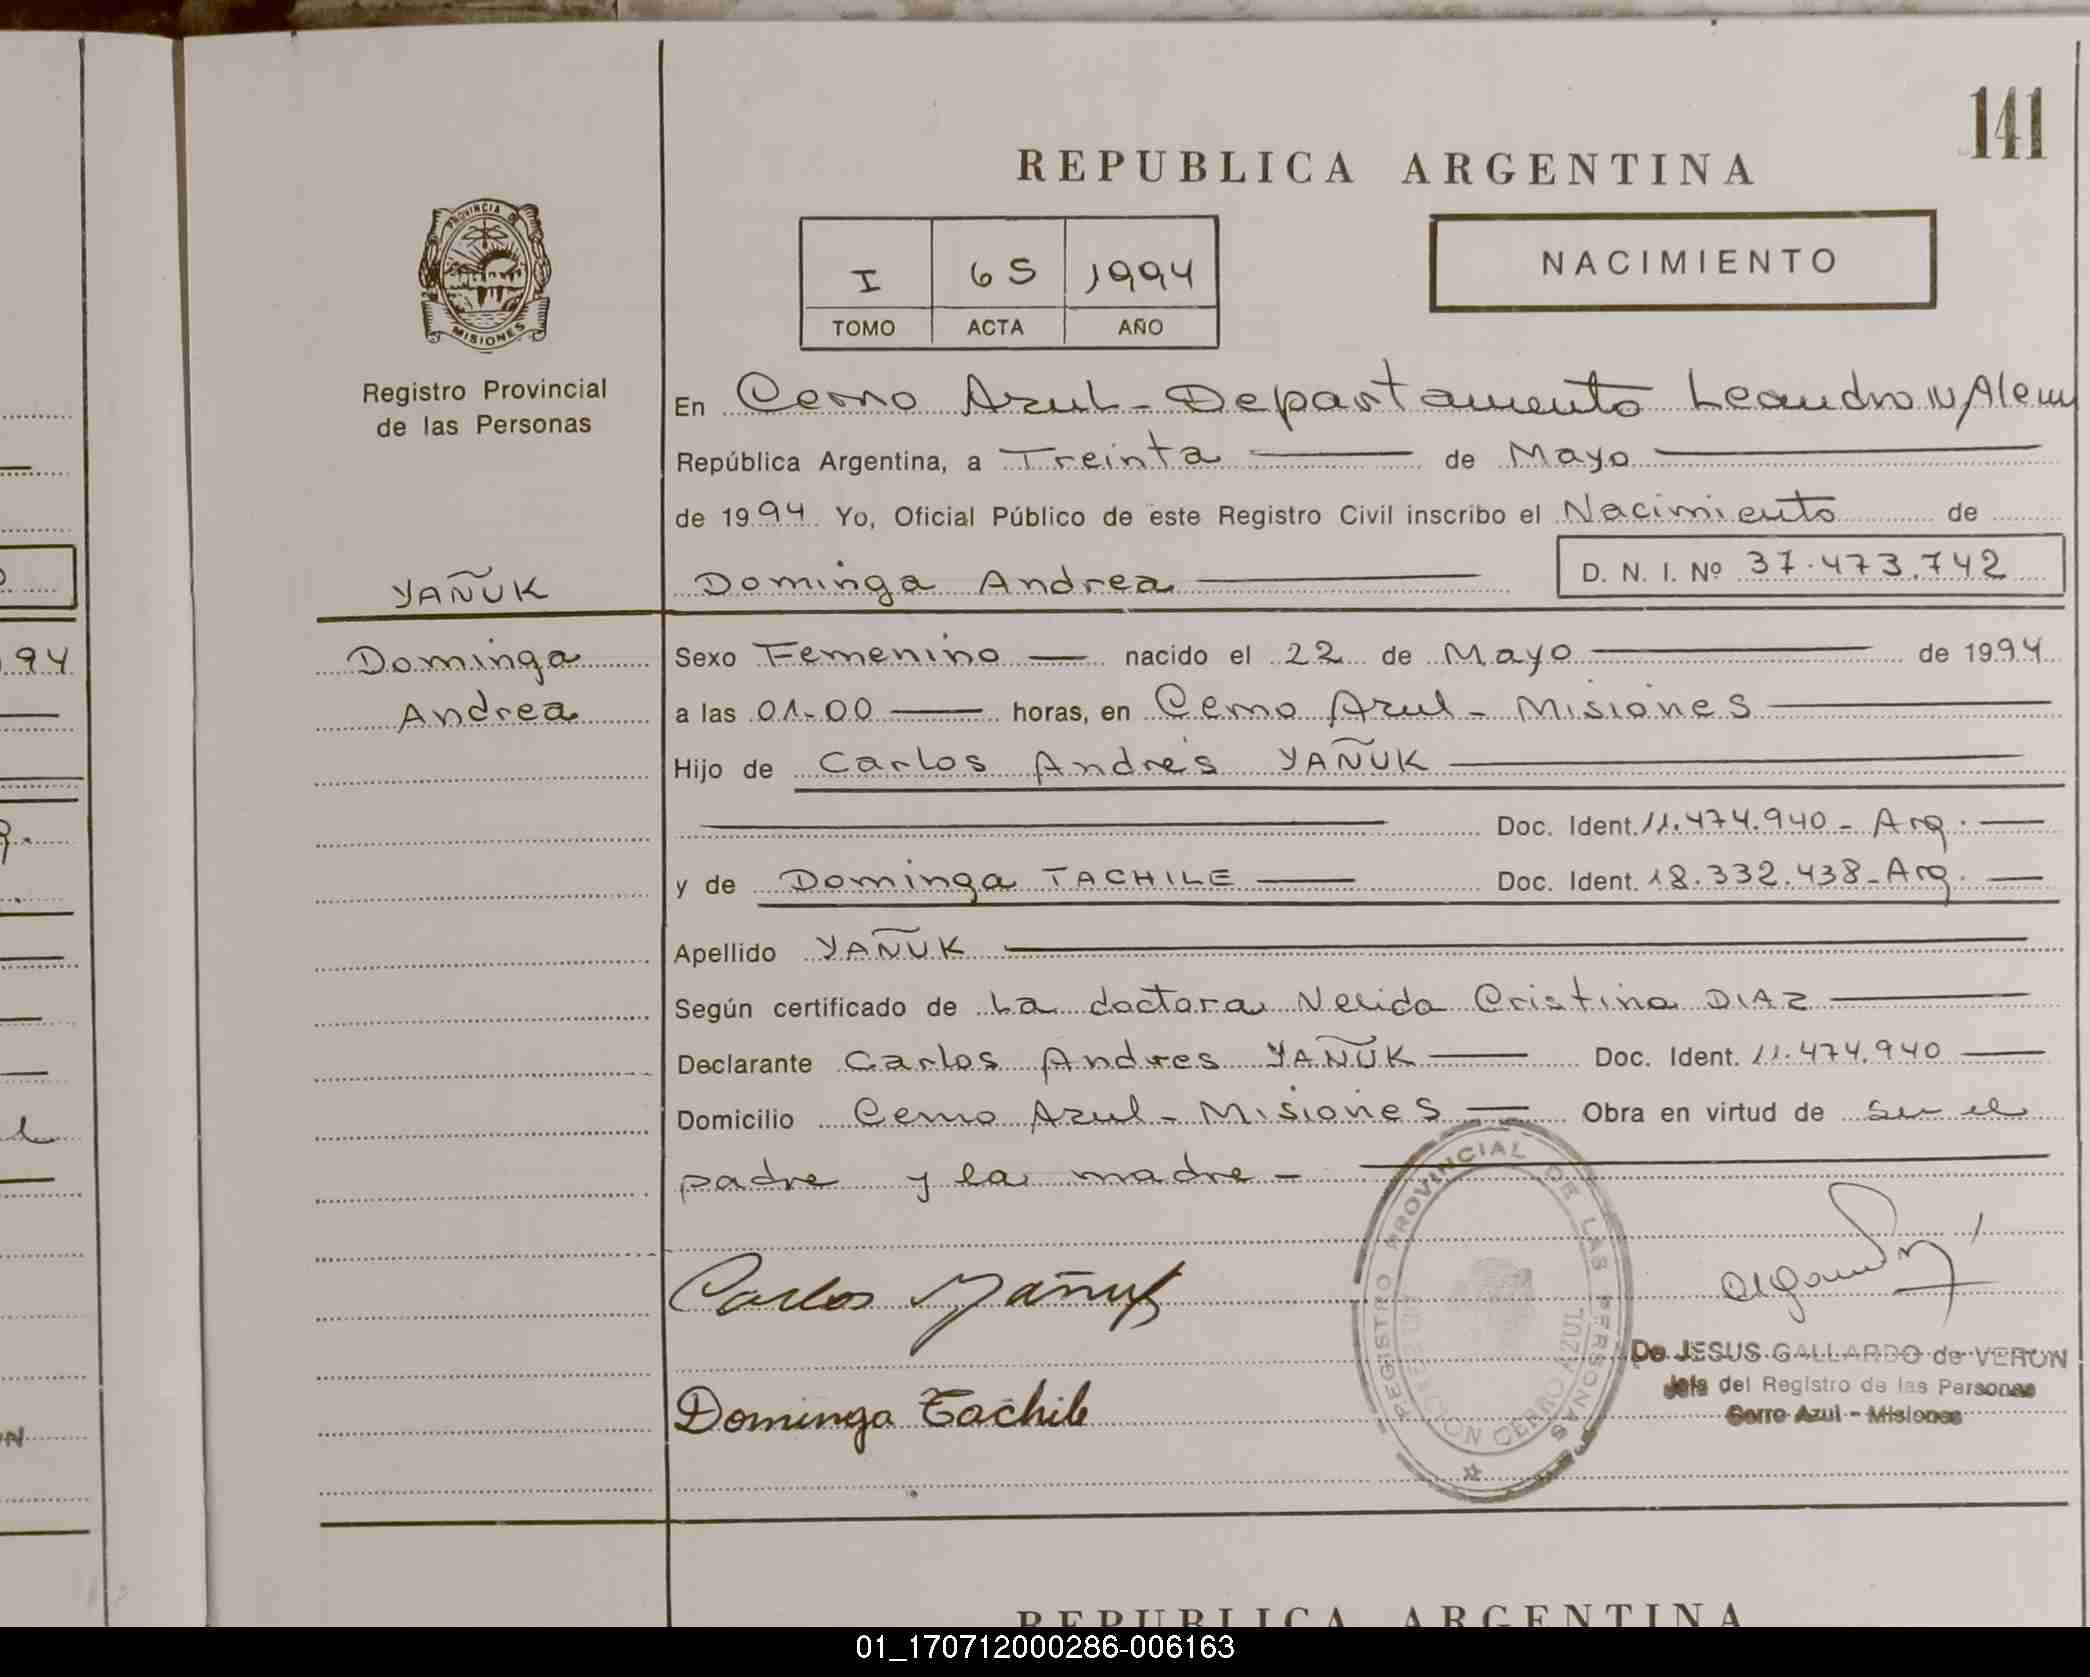 141
REPUBLICA ARGENTINA
PROVINCIA DE
MISIONES
I 65 1994
TOMO ACTA AÑO
NACIMIENTO
Registro Provincial
de las Personas
En Cerro Azul - Departamento Leandro N Alem
República Argentina, a Treinta de Mayo
de 1994 Yo, Oficial Público de este Registro Civil inscribo el Nacimiento de
YAÑUK Dominga Andrea D. N. I. Nº 37.473.742
Dominga
Andrea
Sexo Femenino nacido el 22 de Mayo de 1994
a las 01-00 horas, en Cerro Azul - Misiones
Hijo de Carlos Andrés YAÑUK
Doc. Ident. 11.474.940 - Arg.
y de Dominga TACHILE Doc. Ident. 18.332.438 - Arg.
Apellido YAÑUK
Según certificado de La doctora Nelida Cristina DIAZ
Declarante Carlos Andres YAÑUK Doc. Ident. 11.474.940
Domicilio Cerro Azul - Misiones Obra en virtud de ser el
padre y la madre -
REGISTRO PROVINCIAL DE LAS PERSONAS
CERRO AZUL
Carlos Yañuk
Dominga Tachile
De JESUS GALLARDO de VERON
Jefe del Registro de las Personas
Cerro Azul - Misiones
94
REPUBLICA ARGENTINA
01_170712000286-006163